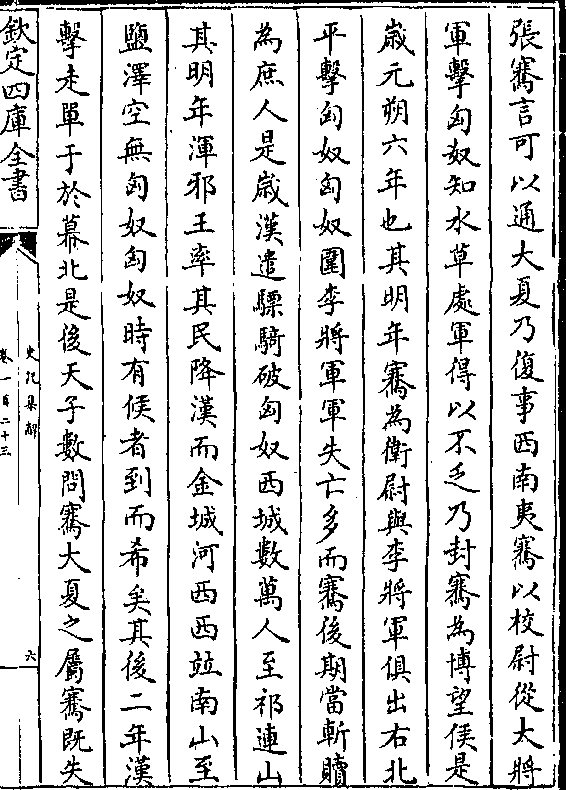 張騫言可以通大夏乃復事西南夷騫以校尉從大將
軍擊匈奴知水草處軍得以不乏乃封騫為博望侯是
嵗元朔六年也其明年騫為衛尉與李將軍俱出右北
平擊匈奴匈奴圍李將軍軍失亡多而騫後期當斬贖
為庶人是嵗漢遣驃騎破匈奴西城數萬人至祁連山
其明年渾邪王率其民降漢而金城河西西並南山至
鹽澤空無匈奴匈奴時有候者到而希矣其後二年漢
擊走單于於幕北是後天子數問騫大夏之屬騫既失
欽定四庫全書
史記集解
卷一百二十三
六